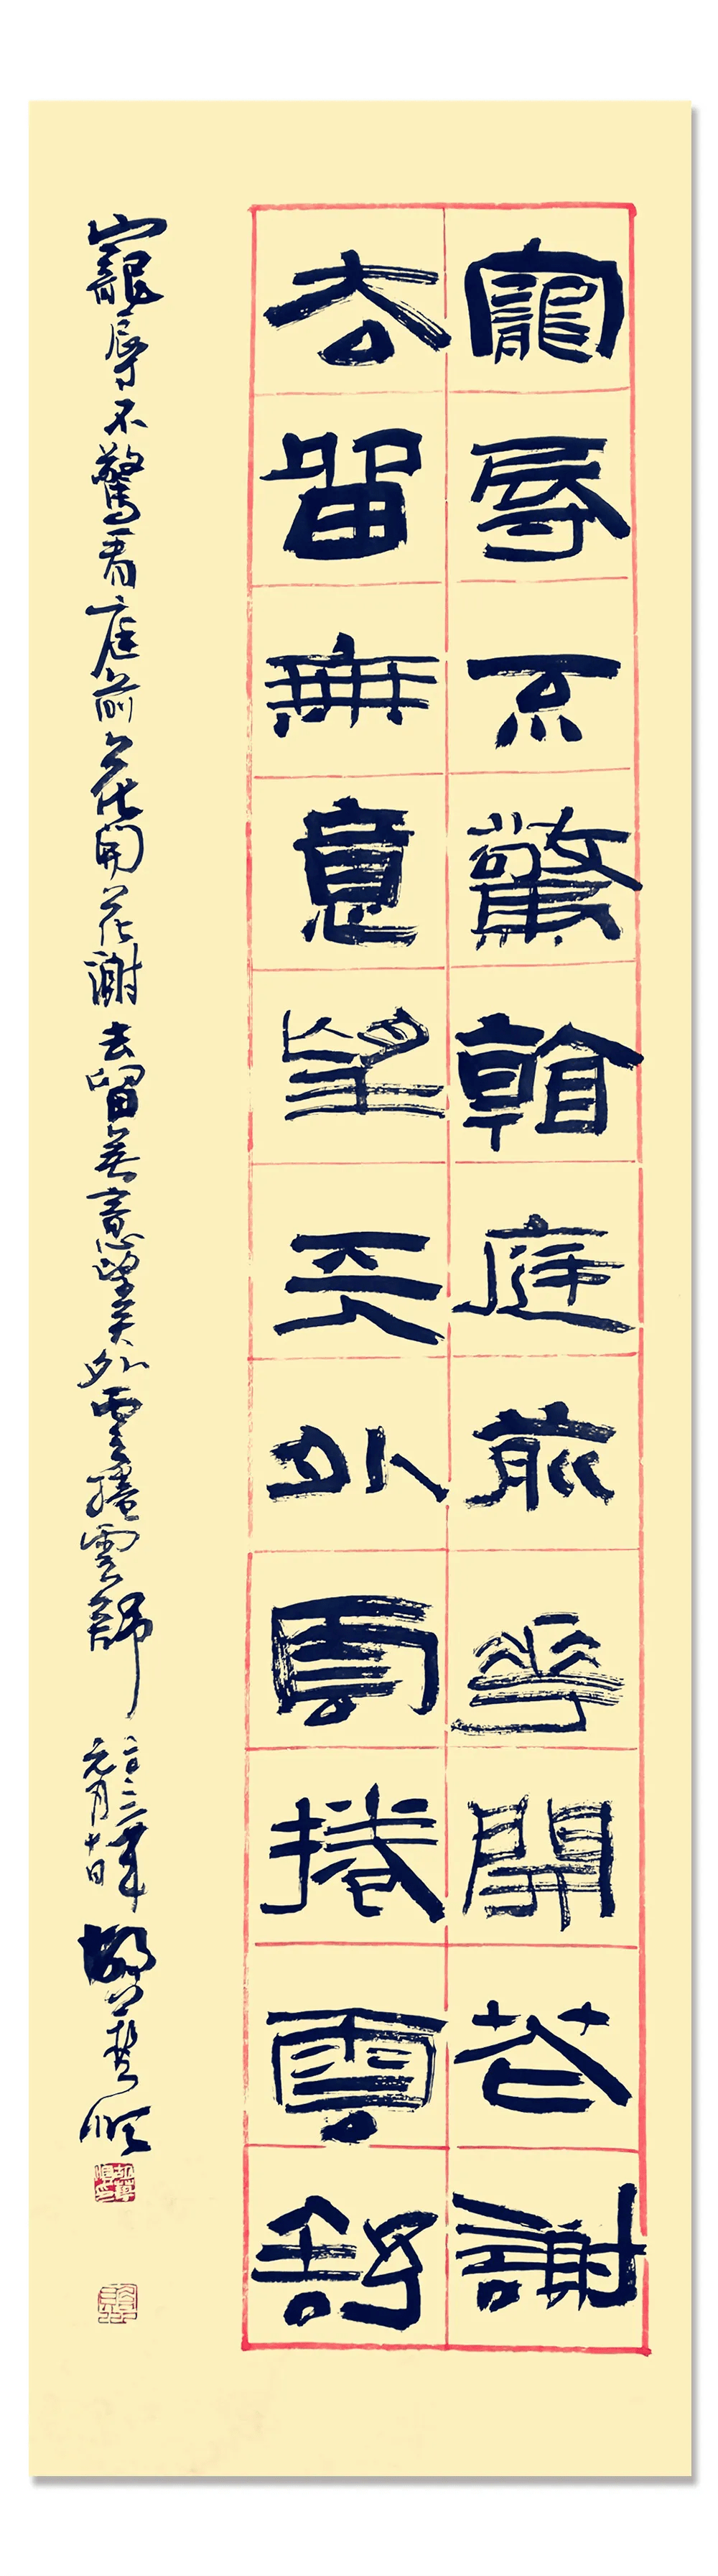 寵辱不驚𩹲庭前華開花謝
去留無意望天外雲捲雲舒
寵辱不驚看庭前花開花謝去留無意望天外雲捲雲舒
二〇二二年
元月十日